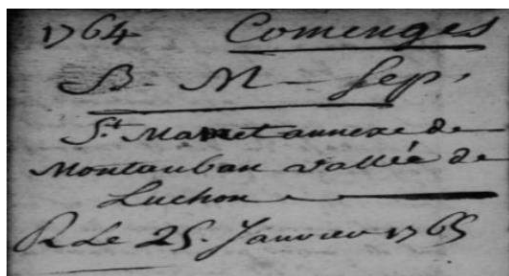 1764 Comenges
B. M - Sep.
St. Mamet annexe de
Montauban vallée de
Luchon
R Le 25. Janvier 1765